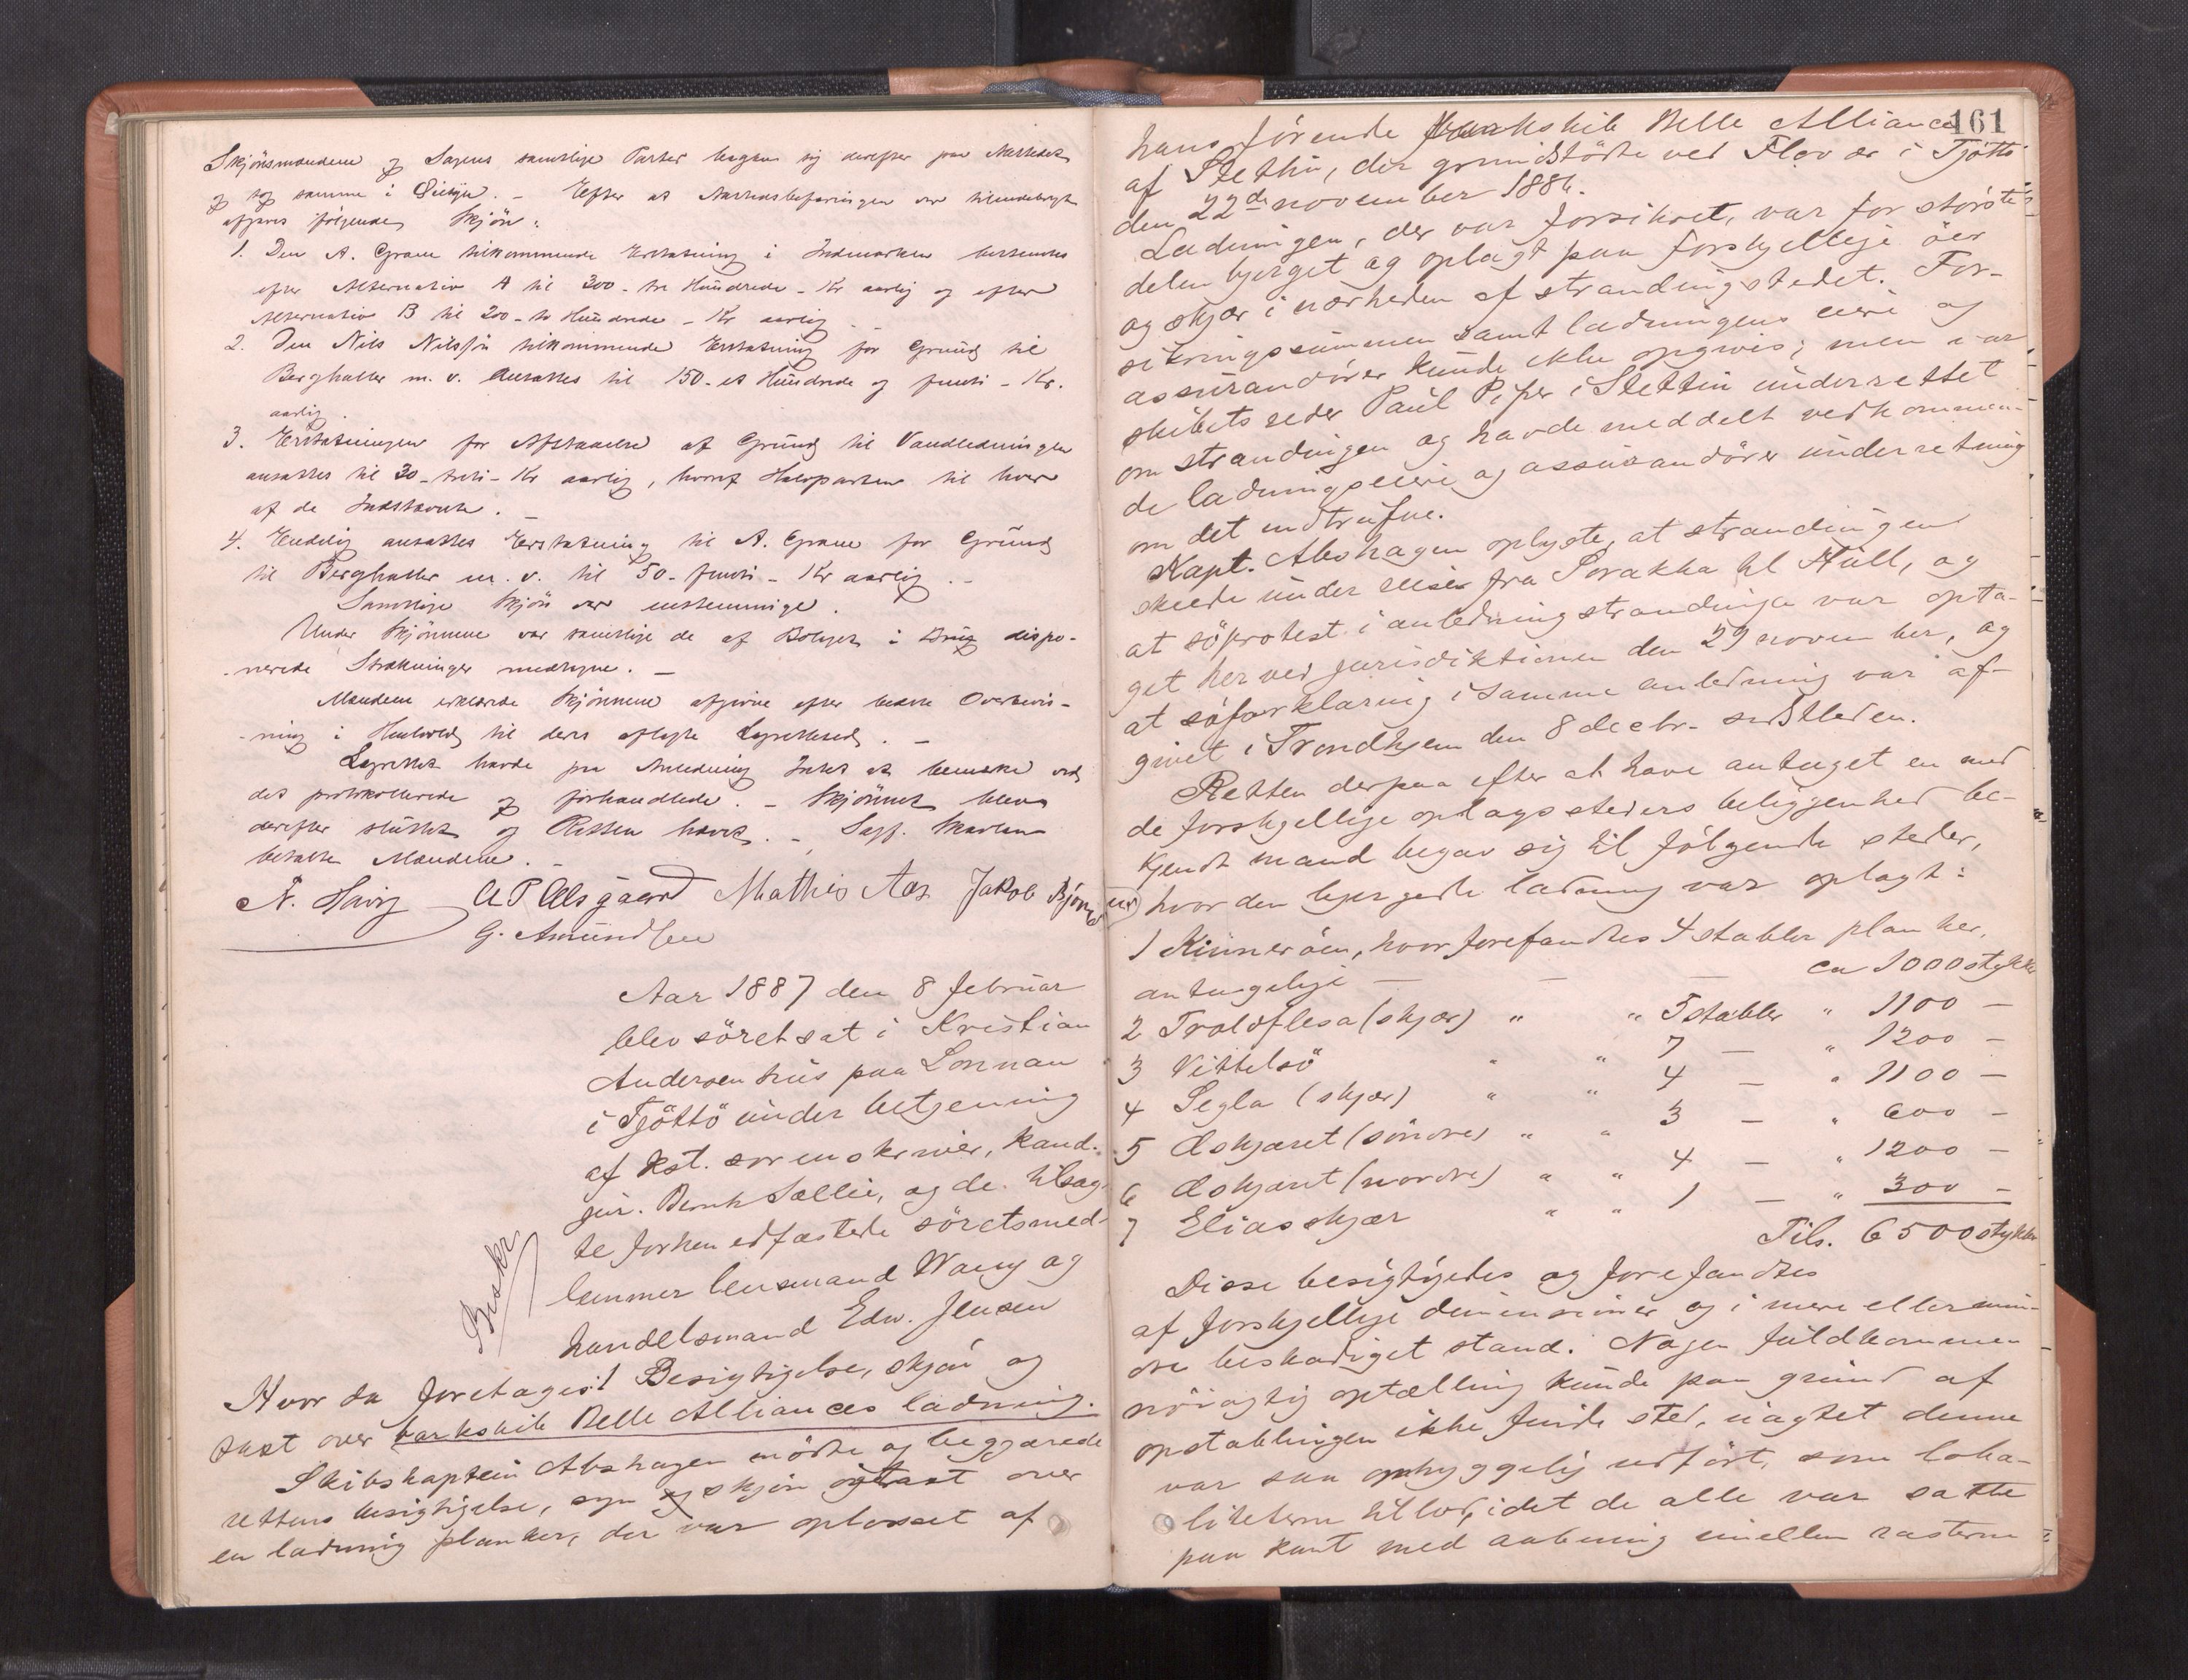 Skjönsmændene og Sagens samtlige Parter begav sig derefter paa Aastedet
og tog samme i Öiesyn. - Efter at Aastedsbefaringen var tilendebragt
afgaves følgende Skjön:
1. Den A. Grane tilkommende Erstatning i Indmarken bestemtes
efter Alternativ A til 300 - tre Hundrede - Kr aarlig og efter
Alternativ B til 200 - to Hundrede - Kr aarlig
2. Den Nils Nilssön tilkommende Erstatning for Grund til
Berghalter m. v. ansattes til 150 - et Hundrede og femti - Kr.
aarlig.
3. Erstatningen for Afstaaelse af Grund til Vandledningen
ansattes til 30 - treti - Kr aarlig, hvoraf Halvparten til hver
af de Indstævnte. -
4. Endelig ansattes Erstatning til A. Grane for Grund
til Berghalter m. v. til 50 - femti - Kr aarlig. -
Samtlige Skjön var enstemmige.
Under Skjönnene var samtlige de af Bolaget i Brug dispo-
-nerede Strækninger medtagne. -
Mændene erklærede Skjönnene afgivne efter bedste Overbevis-
-ning i Henhold til deres aflagte Lagrettesed. -
Lagrettet havde paa Anledning Intet at bemærke ved
det protokollerede og forhandlede. - Skjönnet blev
derefter sluttet og Retten hævet. - Sagf.
betalte Mændene. -
A. P. Alsgaard Mathis Aas Jakob Bjørn
G. Amundsen
Aar 1887 den 8 februar
blev söret sat i Kristian
Andersen hus paa Lonnan
i Tjöttö under betjening
af kst. sorenskriver, kand.
jur. Bernh Sællie, og de tilsag-
te forhen edfæstede söretsmed-
lemmer lensmand Waag og
handelsmand Edw. Jensen
Beskr.
Hvor da foretoges: Besigtigelse, skjön og
taxt over barkskib Belle Alliances ladning.
Skibskaptein Abshagen mödte og begjærede
rettens besigtigelse, syn og skjön og taxt over
en ladning planker, der var oplosset af
161
hans förende barkskib Belle Alliance
af Stettin, der grundstödte ved Flovær i Tjöttö
den 22de november 1886.
Ladningen, der var forsikret, var for störste-
delen bjerget og oplagt paa forskjellige öer
og skjær i nærheden af strandingsstedet. For-
sikringssummen samt ladningens eiere og
assurandörer kunde ikke opgives; men var
skibets reder Paul Piper i Stettin underrettet
om strandingen og havde meddelt vedkommen-
de ladningseiere og assurandörer underretning
om det indtrufne.
Kapt. Abshagen oplyste, at strandingen
skeede under reise fra Sorokka til Hull, og
at söprotest i anledning strandinga var opta-
get her ved jurisdiktionen den 29 november, og
at söforklaring i samme anledning var af-
givet i Trondhjem den 8 decbr. sidstleden.
Retten derpaa efter at have antaget en med
de forskjellige oplagssteders beliggenhed be-
kjendt mand begav sig til fölgende steder,
hvor den bjergede ladning var oplagt:
1 Kinneröen, hvor forefandtes 4 stabler planker,
antagelige — — — ca 1000 stykker
2 Troldflesa (skjær) " " 5 stabler " 1100 —
3 Vittelsö " " 7 — " 1200 —
4 Segla (skjær) " " 4 — " 1100 —
5 Oskjæret (söndre) " " 3 — " 600 —
6 Oskjæret (nordre) " " 4 — " 1200 —
7 Eliasskjær " " 1 — " 300 —
Tils. 6500 stykker
Disse besigtigedes og forefandtes
af forskjellige dimensioner og i mere eller min-
dre beskadiget stand. Nogen fuldkommen
nöiagtig optælling kunde paa grund af
opstablingen ikke finde sted, uagtet denne
var saa omhyggelig udfört, som loka-
liteterne tillod, idet de alle var satte
paa kant med aabning imellem rasterne